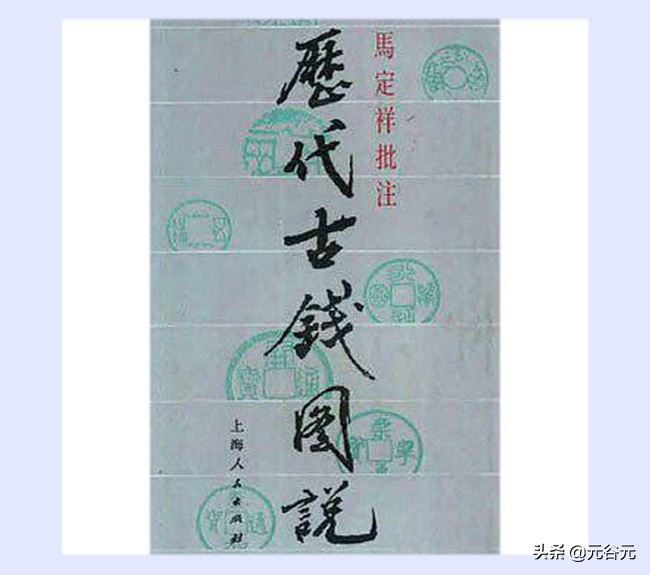 馬定祥批注
歷代古錢图說
上海人民出版社
头条 @元谷元